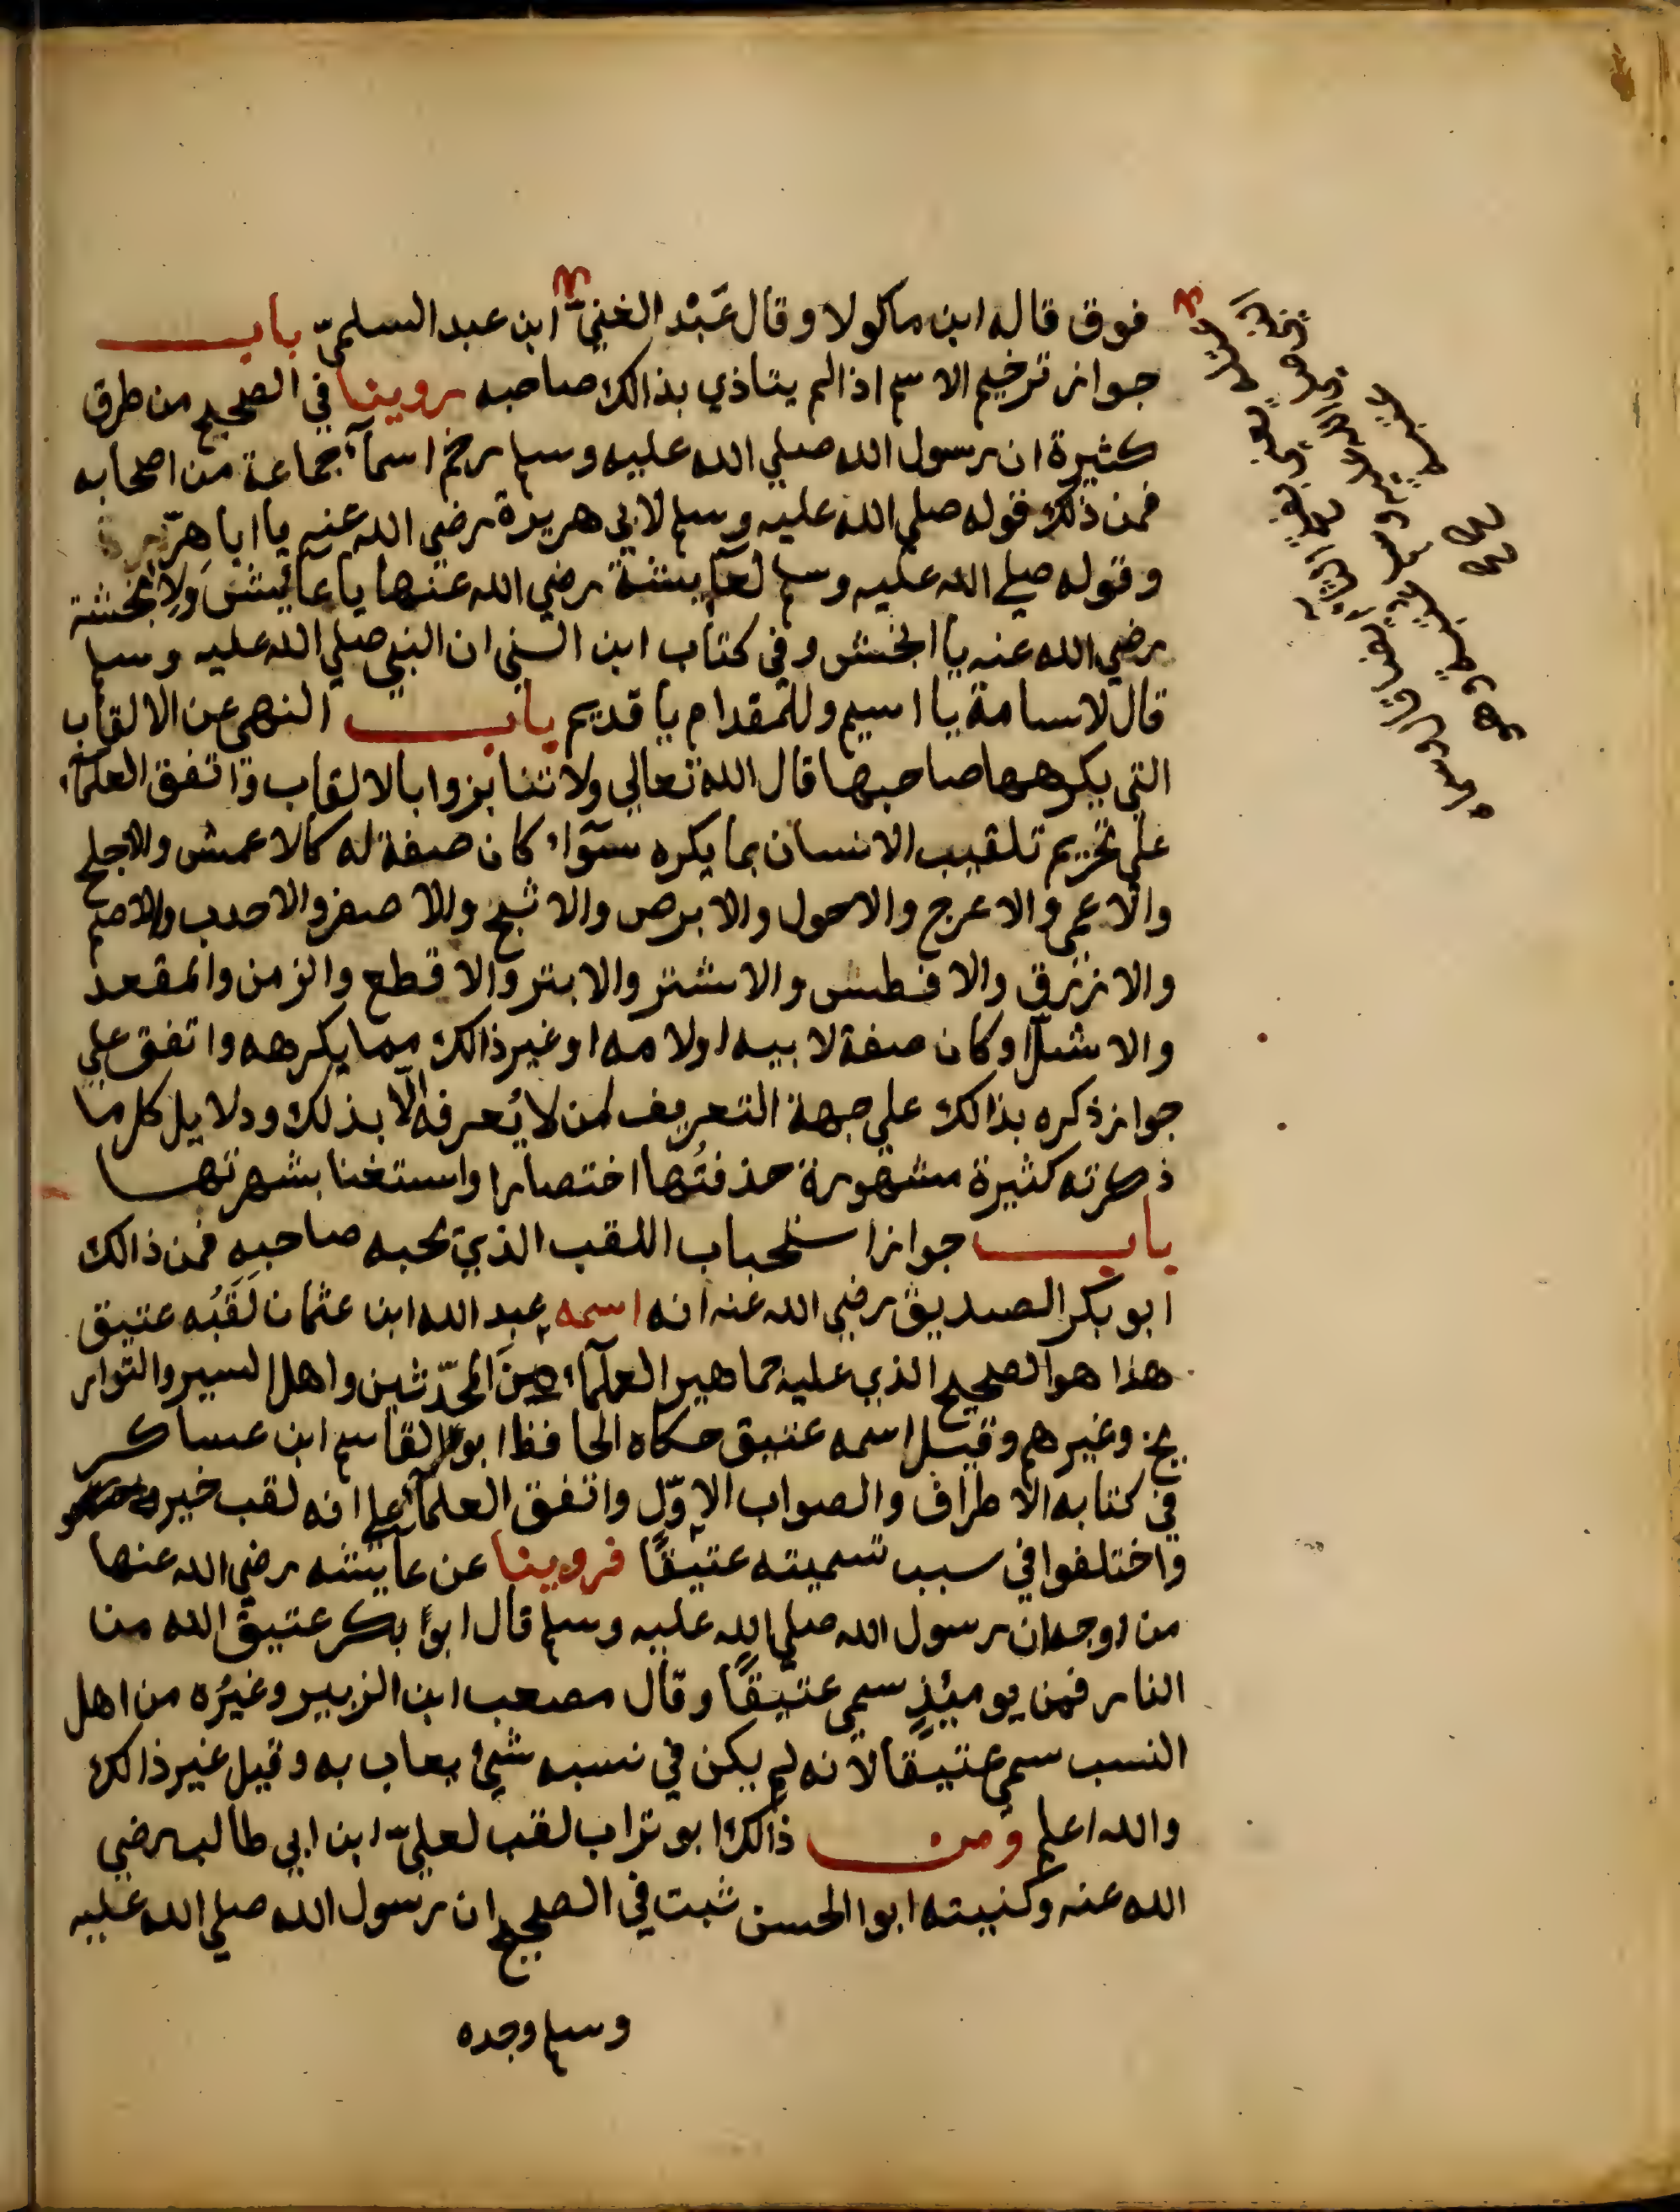 فوق قاله ابن ماكولا وقال عَبْد الغنيّ ابن عبد السلميّ باب
جواز ترخيم الاسم اذا لم يتاذي بذالك صاحبه روينا في الصحيح من طرق
كثيرة ان رسول الله صلي الله عليه وسلم رخم اسمآء جماعة من اصحابه
فمن ذلك قوله صلي الله عليه وسلم لابي هريرة رضي الله عنه يا ابا هرّ
وقوله صلي الله عليه وسلم لعآيشة رضي الله عنها يا عائيش ولانجشة
رضي الله عنه يا انجش وفي كتاب ابن السني ان النبي صلي الله عليه وسلم
قال لاسامة يا اسيم وللمقدام يا قديم باب النهي عن الالقاب
التي يكرهها صاحبها قال الله تعالي ولا تنابزوا بالالقاب واتفق العلمآء
علي تحريم تلقيب الانسان بما يكره سوآء كان صفة له كالاعمش والاجلح
والاعمي والاعرج والاحول والابرص والاشج والاصفر والاحدب والاصم
والازرق والافطس والاشتر والابتر والاقطع والزمن والمقعد
والاشلّ او كان صفة لابيه او لامه او غير ذالك مما يكرهه واتفق علي
جواز ذكره بذالك علي جهة التعريف لمن لا يُعرفه الّا بذلك ودلايل كل ما
ذكرته كثيرة مشهورة حذفتُها اختصارا واستغنا بشهرتها
باب جواز استحباب اللقب الذي يحبه صاحبه فمن ذالك
ابو بكر الصديق رضي الله عنه انه اسمه عبد الله ابن عثمان لَقَبُه عتيق
هذا هو الصحيح الذي عليه جماهير العلمآء مِنَ المحدّثين واهل السير والتوار
يخ وغيرهم وقيل اسمه عتيق حكاه الحافظ ابو القاسم ابن عساكر
في كتابه الاطراف والصواب الاوّل واتفق العلمآء علي انه لقب خير
واختلفوا في سبب تسميته عتيقًا فروينا عن عآيشه رضي الله عنها
من اوجه ان رسول الله صلي الله عليه وسلم قال ابوا بكر عتيق الله من
النار فمن يوميئذٍ سمي عتيقًا وقال مصعب ابن الزبير وغيرُه من اهل
النسب سمي عتيقًا لانه لم يكن في نسبه شيئ يعاب به وقيل غير ذالك
والله اعلم ومن ذالك ابو تراب لقب لعليّ ابن ابي طالب رضي
الله عنه وكنيته ابوا الحسن ثبت في الصحيح ان رسول الله صلي الله عليه
وسلم وجده